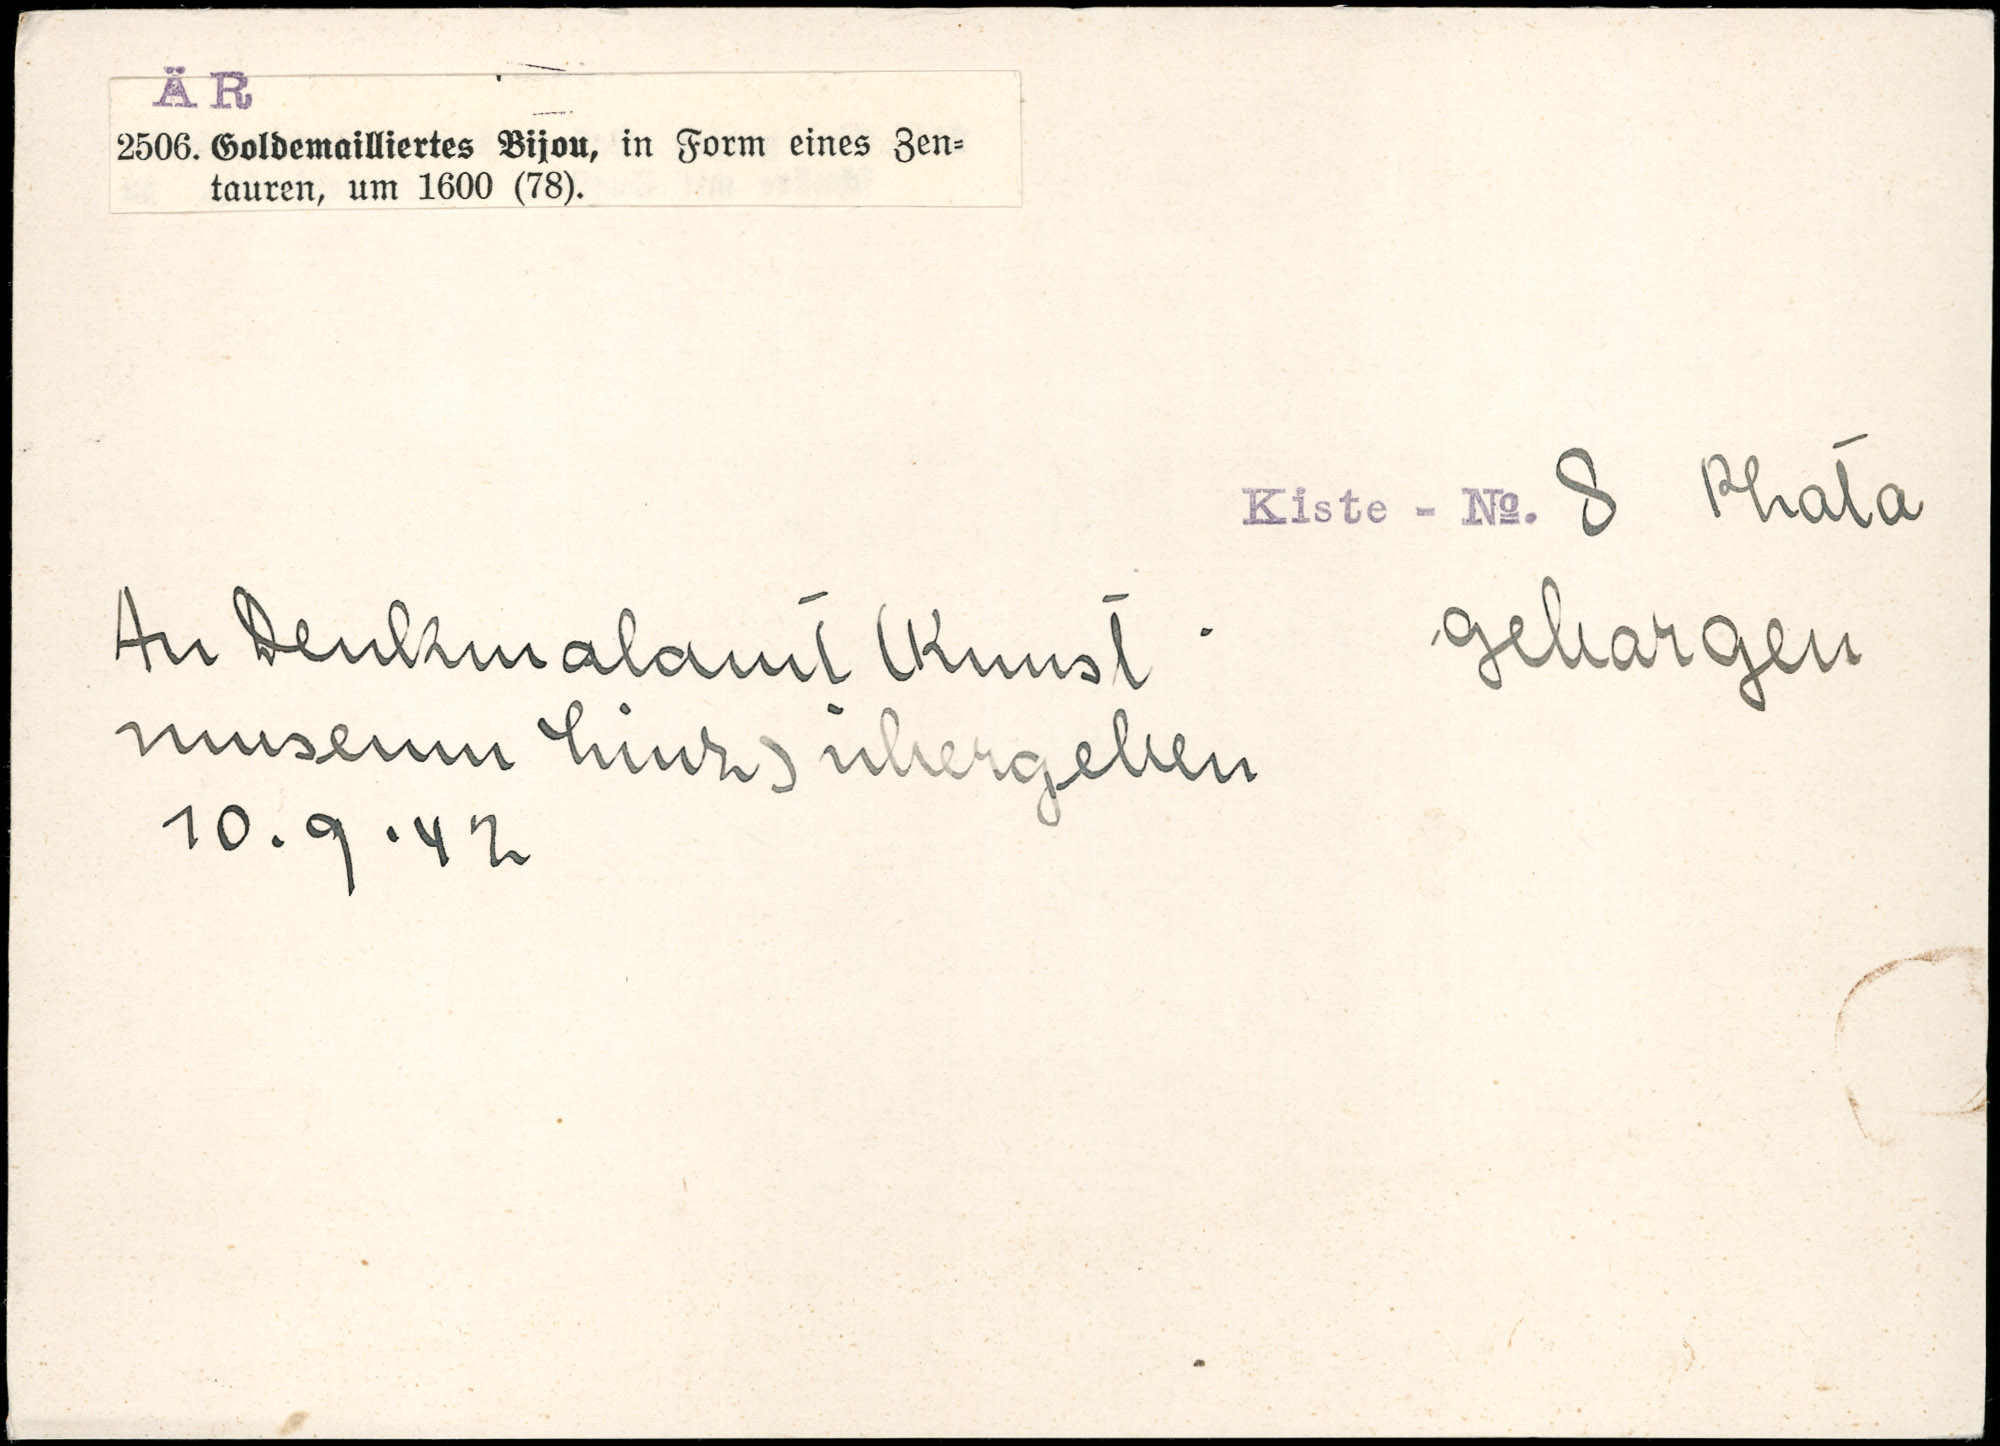 ÄR
2506. Goldemailliertes Bijou, in Form eines Zen-
tauren, um 1600 (78).
Kiste - No. 8 Rhota
geborgen
An Denkmalamt (Kunst
museum Linz) übergeben
10.9.42